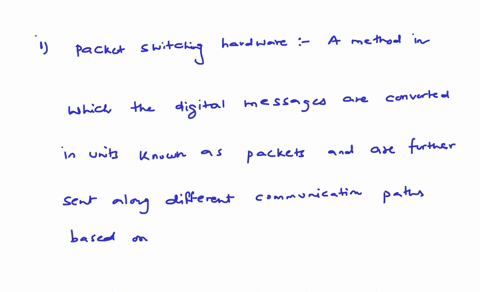 1) Packet switching hardware :- A method in
which the digital messages are converted
in units known as packets and are further
sent along different communication paths
based on